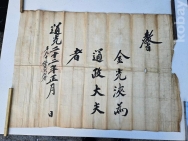 敎
金光浚爲
通政大夫
者
道光二十二年正月 日